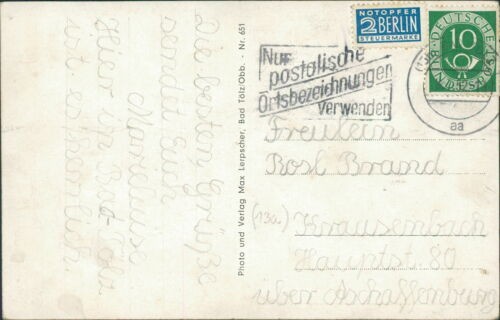 Die besten Grüße
sendet Euch
Marianne
Hier in Bad-Tölz
ist es herrlich.
Photo und Verlag Max Lerpscher, Bad Tölz/Obb. - Nr. 651
NOTOPFER
2 BERLIN
STEUERMARKE
DEUTSCHE BUNDESPOST
10
Nur
postalische
Ortsbezeichnungen
verwenden
aa
Fräulein
Rosl Brand
(13a) Krausenbach
Hauptst. 80
über Aschaffenburg